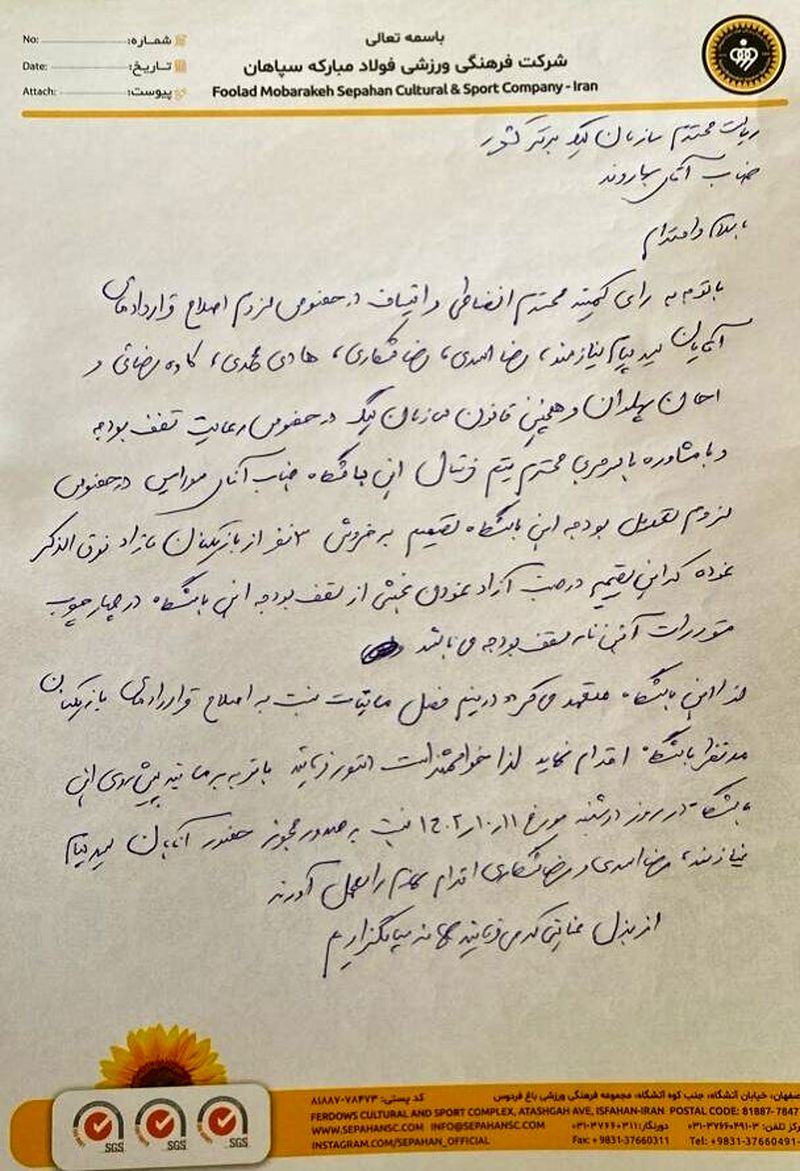 باسمه تعالی
شرکت فرهنگی ورزشی فولاد مبارکه سپاهان
Foolad Mobarakeh Sepahan Cultural & Sport Company - Iran
No: شماره:
Date: تاریخ:
Attach: پیوست:
ریاست محترم سازمان لیگ برتر کشور
جناب آقای بهاروند
با سلام و احترام
با توجه به رای کمیته محترم انضباطی و استیناف در خصوص لزوم اصلاح قراردادهای
آقایان سید پیام نیازمند، رضا اسدی، رضا شکاری، هادی محمدی، کاوه رضائی و
احسان پهلوان و همچنین قانون سازمان لیگ در خصوص رعایت سقف بودجه
و با مشاوره با سرمربی محترم تیم فوتبال این باشگاه جناب آقای مورایس در خصوص
لزوم تعدیل بودجه این باشگاه تصمیم به فروش ۳ نفر از بازیکنان مازاد فوق الذکر
نموده که این تصمیم در جهت آزاد نمودن بخشی از سقف بودجه این باشگاه در چهارچوب
مقررات آئین نامه سقف بودجه می باشد
لذا این باشگاه متعهد می گردد در نیم فصل مسابقات نسبت به اصلاح قراردادهای بازیکنان
مد نظر باشگاه اقدام نماید لذا خواهشمند است دستور فرمائید با توجه به مسابقه پیش روی این
باشگاه در روز دوشنبه مورخ ۱۴۰۲/۱۰/۱۱ نسبت به صدور مجوز حضور آقایان سید پیام
نیازمند، رضا اسدی و رضا شکاری اقدام لازم را بعمل آورند
از بذل عنایتی که می فرمائید سپاسگزاریم
اصفهان، خیابان آتشگاه، جنب کوه آتشگاه، مجموعه فرهنگی ورزشی باغ فردوس کد پستی: ۷۸۴۷۳-۸۱۸۸۷
FERDOWS CULTURAL AND SPORT COMPLEX, ATASHGAH AVE, ISFAHAN-IRAN POSTAL CODE: 81887- 7847
WWW.SEPAHANSC.COM INFO@SEPAHANSC.COM دورنگار: ۰۳۱-۳۷۶۶۰۳۱۱ مرکز تلفن: ۳-۳۷۶۶۰۴۹۱-۰۳۱
INSTAGRAM.COM/SEPAHAN_OFFICIAL Fax: +9831-37660311 Tel: +9831-3766049
SGS SGS SGS